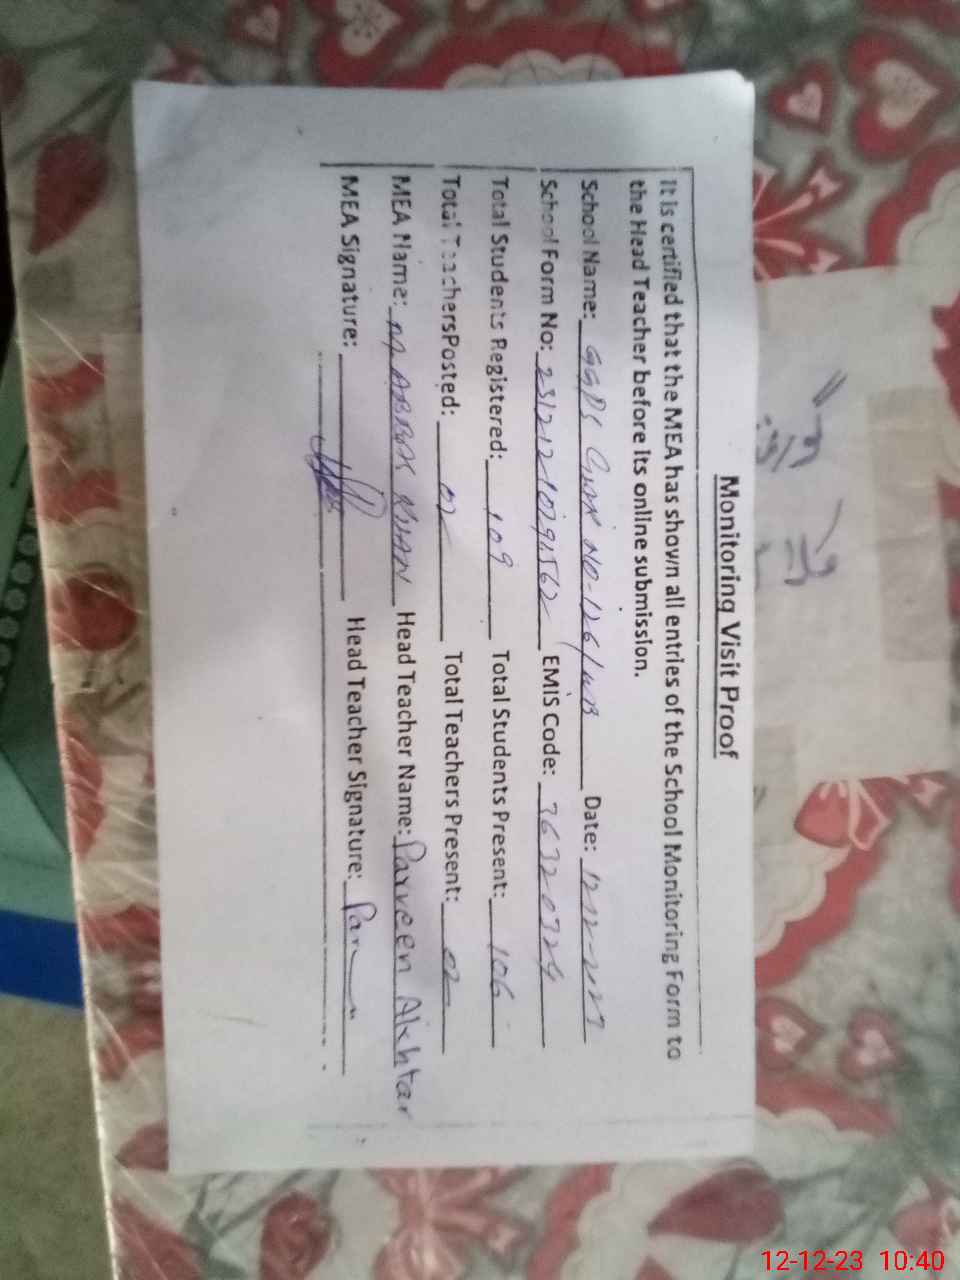 Monitoring Visit Proof
It is certified that the MEA has shown all entries of the School Monitoring Form to
the Head Teacher before its online submission.
School Name: GGPS NO-126/WB Date: 12-12-2023
School Form No: EMIS Code: 36320724
Total Students Registered: 109 Total Students Present: 106
Total Teachers Posted: 02 Total Teachers Present: 02
MEA Name: KHAN Head Teacher Name: Parveen Akhtar
MEA Signature: Head Teacher Signature:
12-12-23 10:40